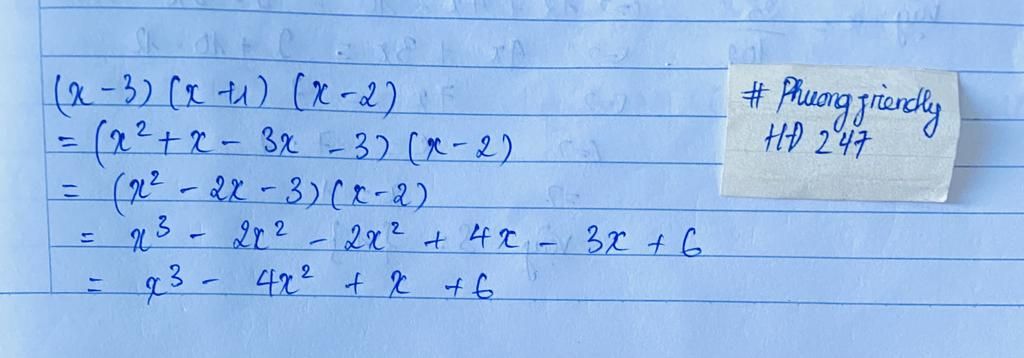 (x - 3) (x + 1) (x - 2)
= (x² + x - 3x - 3) (x - 2)
= (x² - 2x - 3) (x - 2)
= x³ - 2x² - 2x² + 4x - 3x + 6
= x³ - 4x² + x + 6
# Phuong friendly
HĐ 247